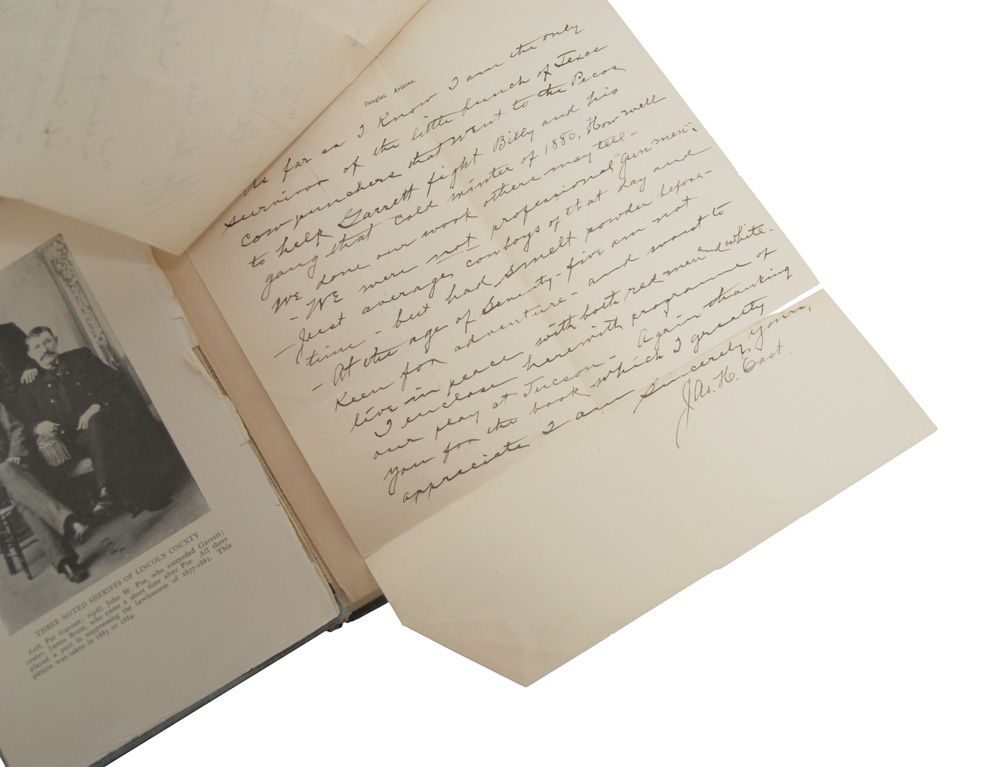 Douglas, Arizona,
As far as I Know I am the only
survivor of the little bunch of Texas
cow-punchers that went to the Pecos
to help Garrett fight Billy and his
gang that cold winter of 1880. How well
we done our work others may tell-
- We were not profesional "gun men";
Just average cowboys of that day and
time - but had smelt powder before-
- At the age of Seventy-five am not
Keen for adventure - and want to
live in peace with both red men and white-
I enclose herewith programme of
our play at Tucson - Again thanking
you for the book - which I greatly
appreciate I am Sincerely Yours,
Jas. H. East.
THREE NOTED SHERIFFS OF LINCOLN COUNTY
Left, Pat Garrett; right, John W. Poe, who succeeded Garrett;
center, James Brent, who came a short time after Poe. All three
played a part in suppressing the lawlessness of 1877-1881. This
picture was taken in 1883 or 1884.